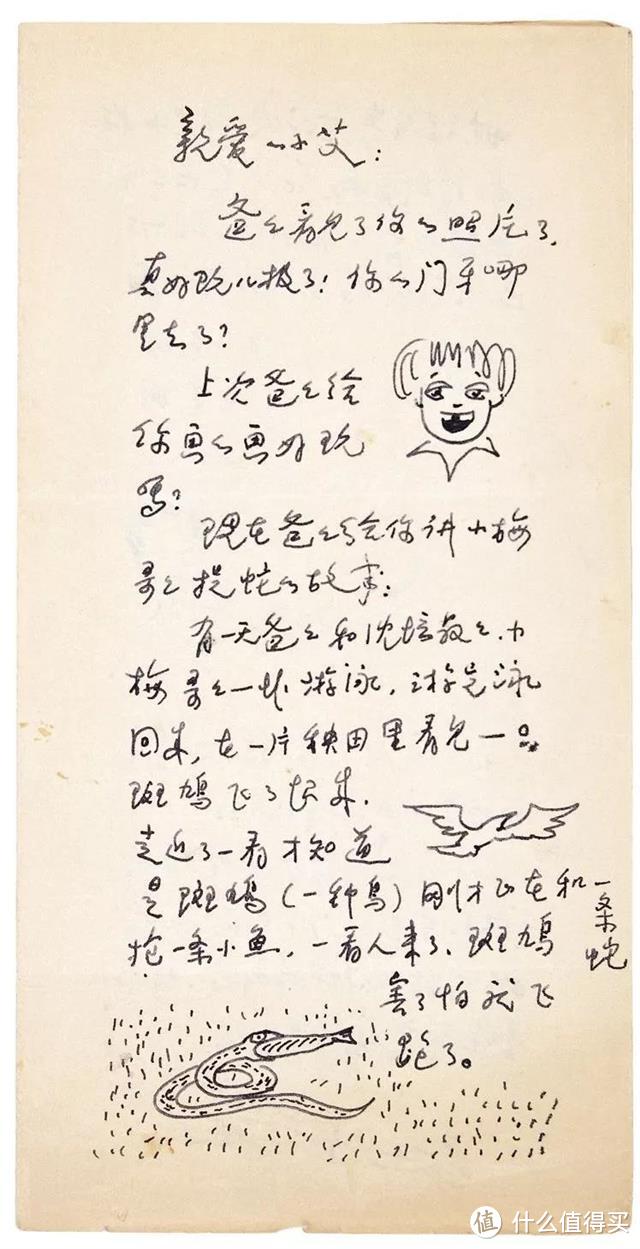 亲爱的小艾：
爸爸看见了你的照片了，
真好玩儿极了！你的门牙哪
里去了？
上次爸爸给
你画的画好玩
吗？
现在爸爸给你讲小梅
哥哥捉蛇的故事：
有一天爸爸和沈培叔叔、小
梅哥哥一起游泳，游完泳
回来，在一片秧田里看见一只
斑鸠飞了起来，
走近了一看才知道
是斑鸠（一种鸟）刚才正在和一条蛇
抢一条小鱼，一看人来了，斑鸠
害了怕就飞
跑了。
值 什么值得买